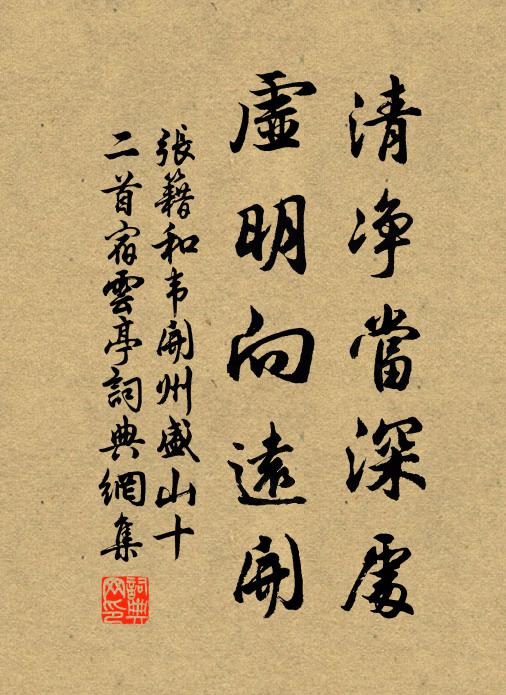 清净當深處
虛明向遠開
張籍和韋開州盛山十
二首宿雲亭詞典網集
詞典网印